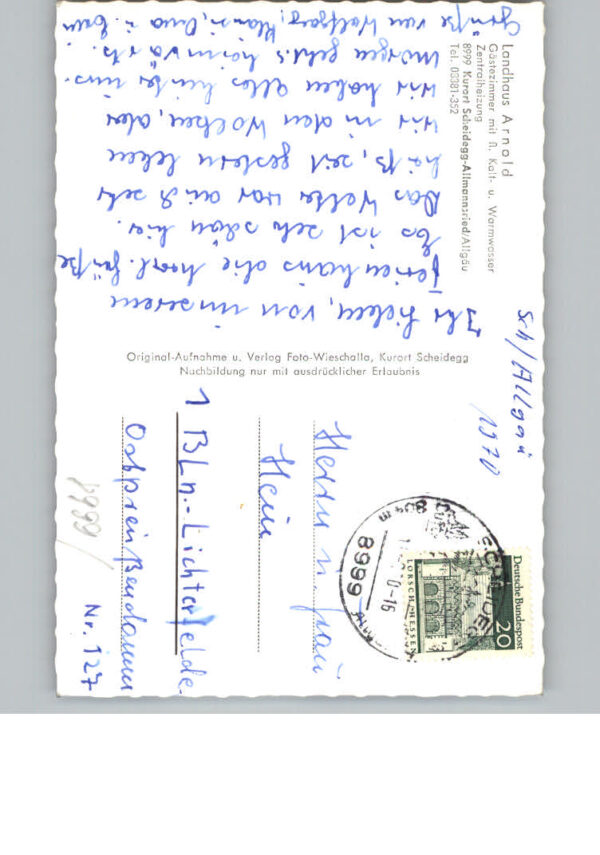 Landhaus Arnold
Gästezimmer mit fl. Kalt- u. Warmwasser
Zentralheizung
8999 Kurort Scheidegg-Allmannsried/Allgäu
Tel. 03381-352
Ihr Lieben, von unserem
Ferienhaus die herzl. Grüße
Es ist sehr schön hier.
Das Wetter war auch sehr
heiß, seit gestern leben
wir in den Wolken, aber
wir haben alles hinter uns.
Morgen geht's heimwärts.
Grüße von Wolfgang, Klausi, u.
Original-Aufnahme u. Verlag Foto-Wieschalla, Kurort Scheidegg
Nachbildung nur mit ausdrücklicher Erlaubnis
Sch/Allgäu
1970
Deutsche Bundespost
20
LORSCH/HESSEN
8999
804 m
Herrn u. Frau
Hein
1 Bln.-Lichterfelde
Ostpreußendamm
Nr. 127
8999/